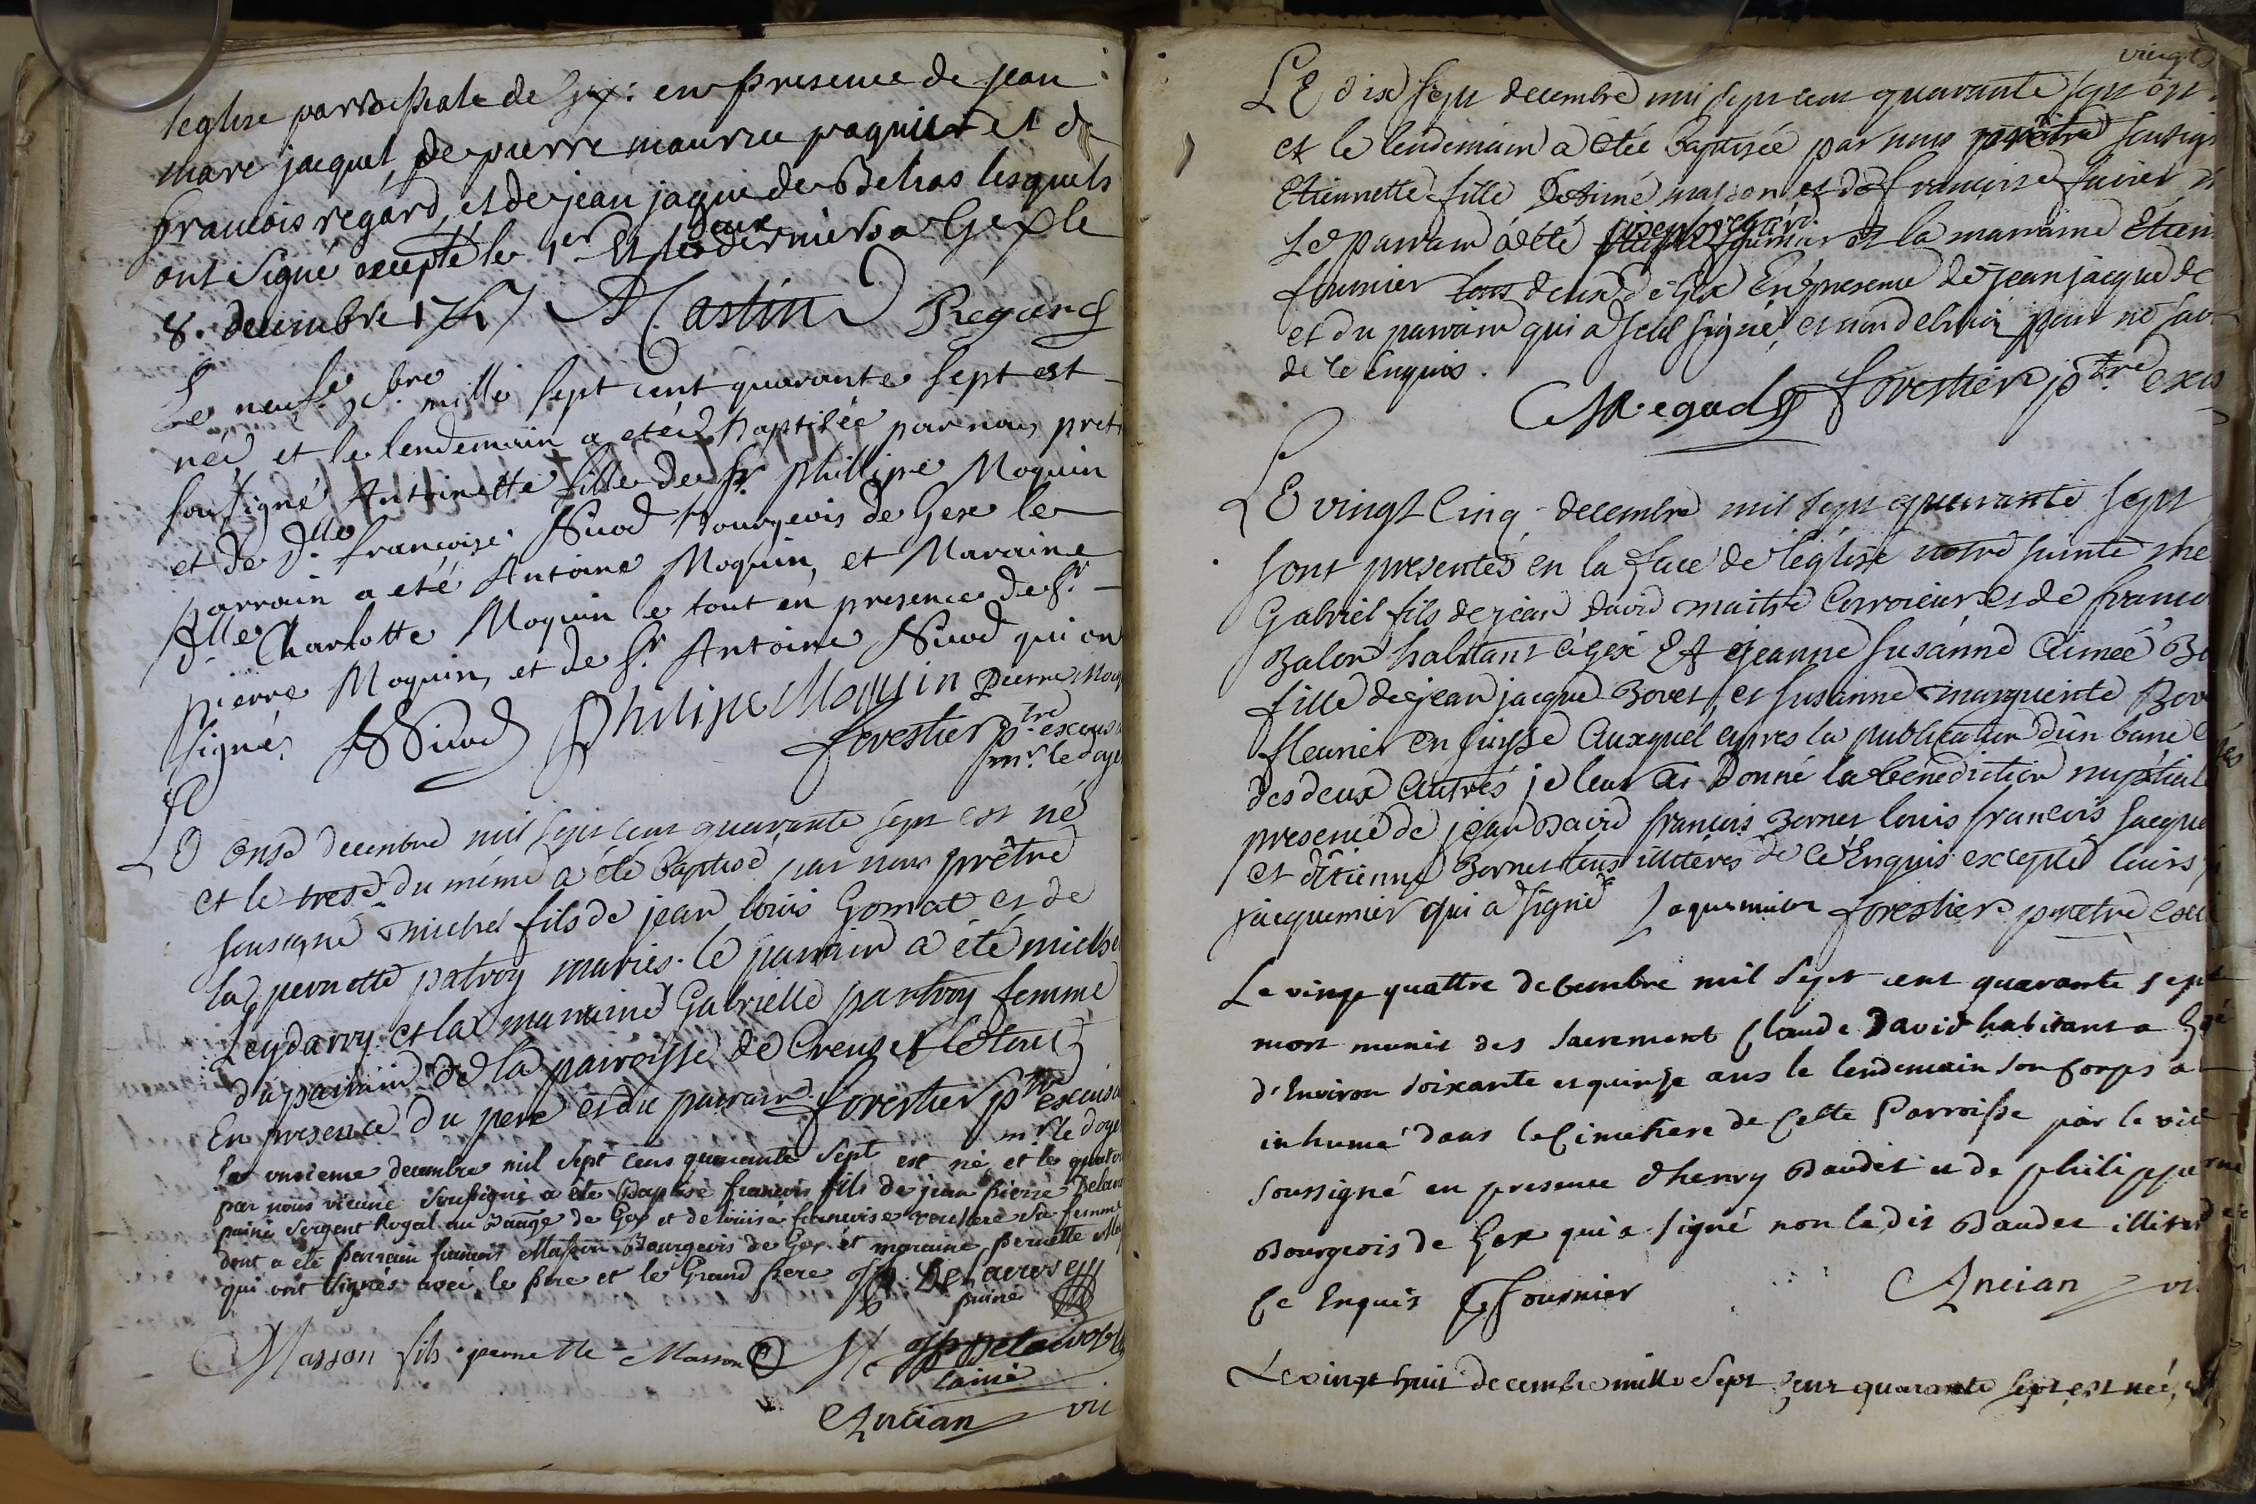 l'eglise parrochiale de Gex : en presence de jean
marc jacquet, de pierre maurice paquier et de
francois regard, et de jean jaque de Belras lesquels
ont signé excepté le 1er et les deux derniers a Gex le
8. decembre 1747 Martin Regard
Le neuf Xbre mille sept cent quarante sept est
née et le lendemain a eteé baptisée par nous pret
sousigné Antoinette fille de Sr. phillipe Moquin
et de Dlle francoise Nicod bourgeois de Gex le
parrain a eté Antoine Moquin, et Maraine
Dlle Charlotte Moquin le tout en presence de Sr.
pierre Moquin, et de Sr. Antoine Nicod qui on
signé, Nicod Philipe Moquin pierre Moq
forestier ptre excusa
mr. le doye
LE onse decembre mil sept cent quarante sept est né
et le trese du même a été baptisé par nous prêtre
sousigné michel fils de jean louis Gomat et de
la pernette patroy mariés. le parrain a été miche
Leydarry et la marraine Gabrielle pantroy femme
du parrain de la parroisse de Creuset le tout
En presence du pere et du parrain. forestier ptre excusa
mr. le doye
Le onsieme decembre mil sept cens quarante sept est né et le quator
par nous vicaire sousigné a été Baptisé francois fils de jean pierre Delav
puiné sergent Royal au Baage de Gex et de louise francoise rouliere sa femme
dont a été parrain francois Masson Bourgeois de Gex et maraine pernette Mas
qui ont signés avec le pere et le Grand pere
puine
Masson fils pernette Masson
lainé
Ancian vic
vingts
LE dix sept decembre mil sept cent quarante sept est
et le lendemain a étée baptisée par nous prêtre sousig
Etiennette fille D'Aimé masson et de francoise
Le parrain a été joseph regard et la marraine Etien
fournier tous deux de Gex En presence de jean jacque de
et du parrain qui a seul signé, et non delmoi pour ne sav
de ce enquis.
Regard forestier ptre excu
LE vingt Cinq decembre mil sept quarante sept
sont presentés en la face de l'église notre sainte me
Gabriel fils de jean david maitre Corroieur et de franco
Balon habitant à gex Et jeanne susanne Aimeé Bo
fille de jean jacque Bovet, et susanne marguerite Bov
fleurier en suisse Auxquel apres la publication d'un banc e
des deux Autres je leur ai Donné la bénédiction nuptial
presence de jean David francois Bornet louis francois jacque
et d'Etienne Bornet tous illitéres de ce Enquis excepté louis
jacquemier qui a signé Jaquemier forestier prêtre excu
Le vingt quattre decembre mil sept cent quarante sept
mort munit des sacrement Claude David habitant a Gex
d'Environ soixante et quinse ans le lendemain son corps a
inhumé dans le Cimetiere de Cette Parroisse par le vic
soussigné en presence d'henry Baudet et de philippe
Bourgeois de Gex qui a signé non le dit Baudet illiteré de
Ce Enquis fournier Ancian vi
Le vingt huit decembre mille sept cent quarante sept est née,